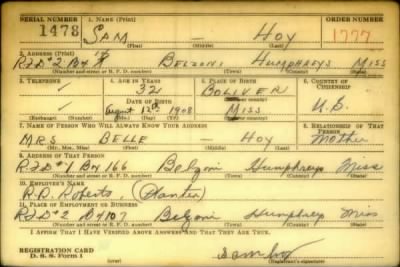 SERIAL NUMBER 1. NAME (Print) ORDER NUMBER
1478 SAM — HOY 1777
(First) (Middle) (Last)
2. ADDRESS (Print)
RFD #2 Bx Belzoni Humphreys Miss
(Number and street or R. F. D. number) (Town) (County) (State)
3. TELEPHONE 4. AGE IN YEARS 5. PLACE OF BIRTH 6. COUNTRY OF CITIZENSHIP
32 BOLIVER
DATE OF BIRTH (Town or county)
August 12th 1908 Miss U.S.
(Exchange) (Number) (Mo.) (Day) (Yr.) (State or country)
7. NAME OF PERSON WHO WILL ALWAYS KNOW YOUR ADDRESS 8. RELATIONSHIP OF THAT PERSON
MRS BELLE — HOY Mother
(Mr., Mrs., Miss) (First) (Middle) (Last)
9. ADDRESS OF THAT PERSON
RFD #1 Bx 166 Belzoni Humphreys Miss
(Number and street or R. F. D. number) (Town) (County) (State)
10. EMPLOYER'S NAME
R.R. Roberts, (Planter)
11. PLACE OF EMPLOYMENT OR BUSINESS
RFD #2 Bx 107 Belzoni Humphreys Miss
(Number and street or R. F. D. number) (Town) (County) (State)
I AFFIRM THAT I HAVE VERIFIED ABOVE ANSWERS AND THAT THEY ARE TRUE.
REGISTRATION CARD
D. S. S. Form 1 (over) Sam Hoy
(Registrant's signature)